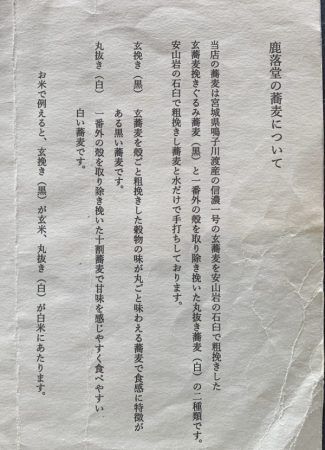 鹿落堂の蕎麦について
当店の蕎麦は宮城県鳴子川渡産の信濃一号の玄蕎麦を安山岩の石臼で粗挽きした
玄蕎麦挽きぐるみ蕎麦（黒）と一番外の殻を取り除き挽いた丸抜き蕎麦（白）の二種類です。
安山岩の石臼で粗挽きし蕎麦と水だけで手打ちしております。
玄挽き（黒）　玄蕎麦を殻ごと粗挽きした穀物の味が丸ごと味わえる蕎麦で食感に特徴が
ある黒い蕎麦です。
丸抜き（白）　一番外の殻を取り除き挽いた十割蕎麦で甘味を感じやすく食べやすい
白い蕎麦です。
お米で例えると、玄挽き（黒）が玄米、丸抜き（白）が白米にあたります。